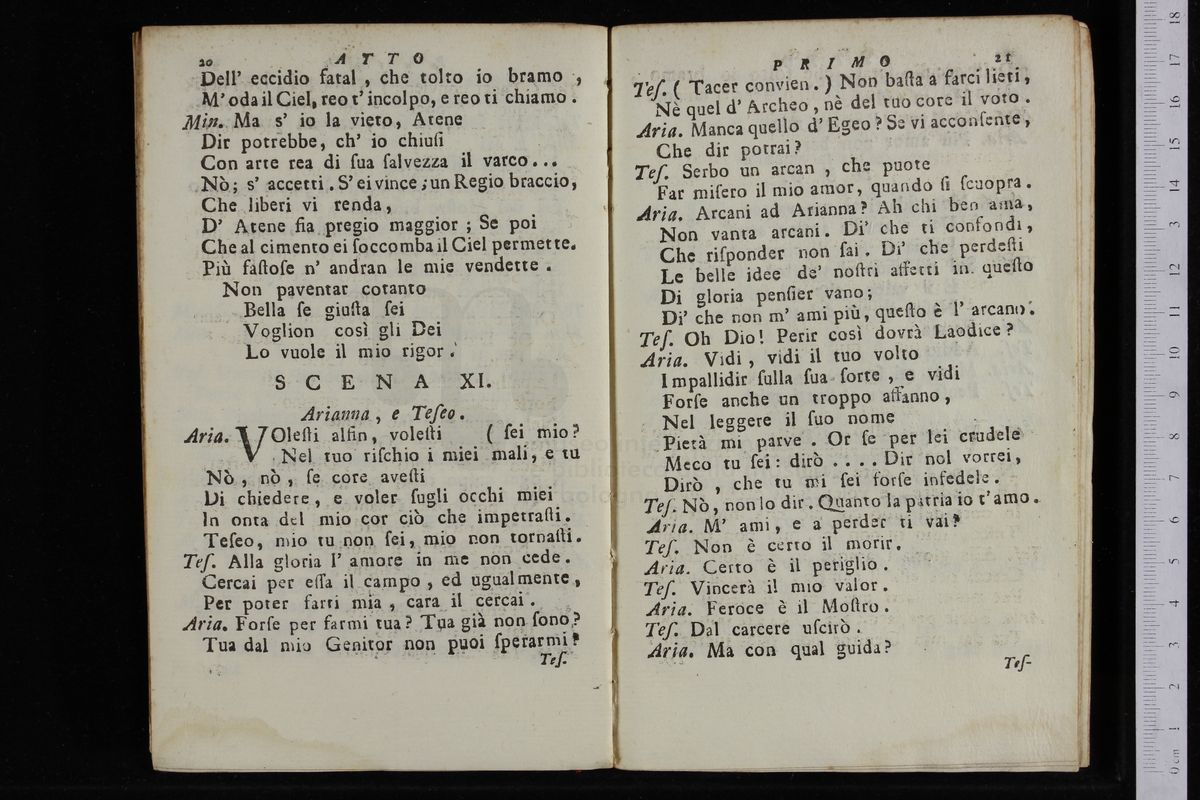 20 ATTO
Dell' eccidio fatal, che tolto io bramo,
M' oda il Ciel, reo t' incolpo, e reo ti chiamo.
Min. Ma s' io la vieto, Atene
Dir potrebbe, ch' io chiuſi
Con arte rea di ſua ſalvezza il varco...
Nò; s' accetti. S' ei vince; un Regio braccio,
Che liberi vi renda,
D' Atene fia pregio maggior; Se poi
Che al cimento ei ſoccomba il Ciel permette.
Più faſtoſe n' andran le mie vendette.
Non paventar cotanto
Bella ſe giuſta ſei
Voglion così gli Dei
Lo vuole il mio rigor.
SCENA XI.
Arianna, e Teſeo.
Aria. VOleſti alfin, voleſti ( ſei mio?
Nel tuo riſchio i miei mali, e tu
Nò, nò, ſe core aveſti
Di chiedere, e voler ſugli occhi miei
In onta del mio cor ciò che impetraſti.
Teſeo, mio tu non ſei, mio non tornaſti.
Teſ. Alla gloria l' amore in me non cede.
Cercai per eſſa il campo, ed ugualmente,
Per poter farti mia, cara il cercai.
Aria. Forſe per farmi tua? Tua già non ſono?
Tua dal mio Genitor non puoi ſperarmi?
Teſ.
PRIMO 21
Teſ. ( Tacer convien. ) Non baſta a farci lieti,
Nè quel d' Archeo, nè del tuo core il voto.
Aria. Manca quello d' Egeo? Se vi acconſente,
Che dir potrai?
Teſ. Serbo un arcan, che puote
Far miſero il mio amor, quando ſi ſcuopra.
Aria. Arcani ad Arianna? Ah chi ben ama,
Non vanta arcani. Di' che ti confondi,
Che riſponder non ſai. Di' che perdeſti
Le belle idee de' noſtri affetti in queſto
Di gloria penſier vano;
Di' che non m' ami più, queſto è l' arcano.
Teſ. Oh Dio! Perir così dovrà Laodice?
Aria. Vidi, vidi il tuo volto
Impallidir ſulla ſua ſorte, e vidi
Forſe anche un troppo affanno,
Nel leggere il ſuo nome
Pietà mi parve. Or ſe per lei crudele
Meco tu ſei: dirò.... Dir nol vorrei,
Dirò, che tu mi ſei forſe infedele.
Teſ. Nò, non lo dir. Quanto la patria io t' amo.
Aria. M' ami, e a perder ti vai?
Teſ. Non è certo il morir.
Aria. Certo è il periglio.
Teſ. Vincerà il mio valor.
Aria. Feroce è il Moſtro.
Teſ. Dal carcere uſcirò.
Aria. Ma con qual guida?
Teſ-